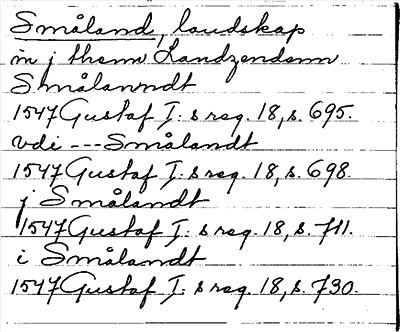 Småland, landskap
in j them Landzendom
Smålanndt
1547 Gustaf I:s reg. 18, s. 695.
vdi --- Smålandt
1547 Gustaf I:s reg. 18, s. 698.
j Smålandt
1547 Gustaf I:s reg. 18, s. 711.
i Smålandt
1547 Gustaf I:s reg. 18, s. 730.